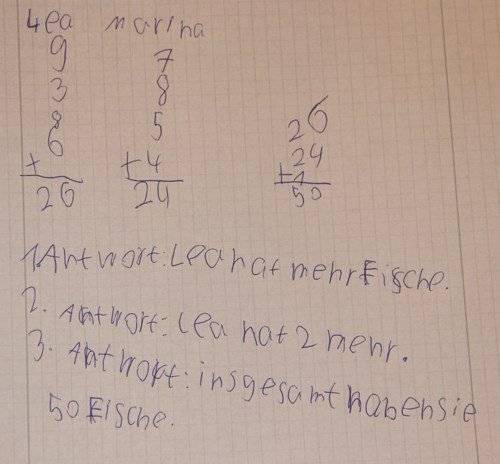 Lea marina
9 7
3 8 26
8 5 24
+ 6 + 4 + 1
26 24 50
1. Antwort: Lea hat mehr Fische.
2. Antwort: Lea hat 2 mehr.
3. Antwort: insgesamt haben sie
50 Fische.